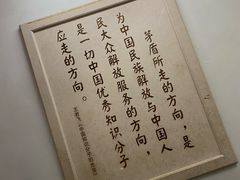 茅盾所走的方向，是
为中国民族解放与中国人
民大众解放服务的方向，
是一切中国优秀知识分子
应走的方向。